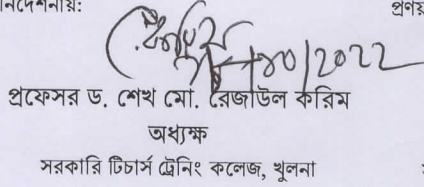 নির্দেশনায়:
/2022
প্রফেসর ড. শেখ মো. রেজাউল করিম
অধ্যক্ষ
সরকারি টিচার্স ট্রেনিং কলেজ, খুলনা